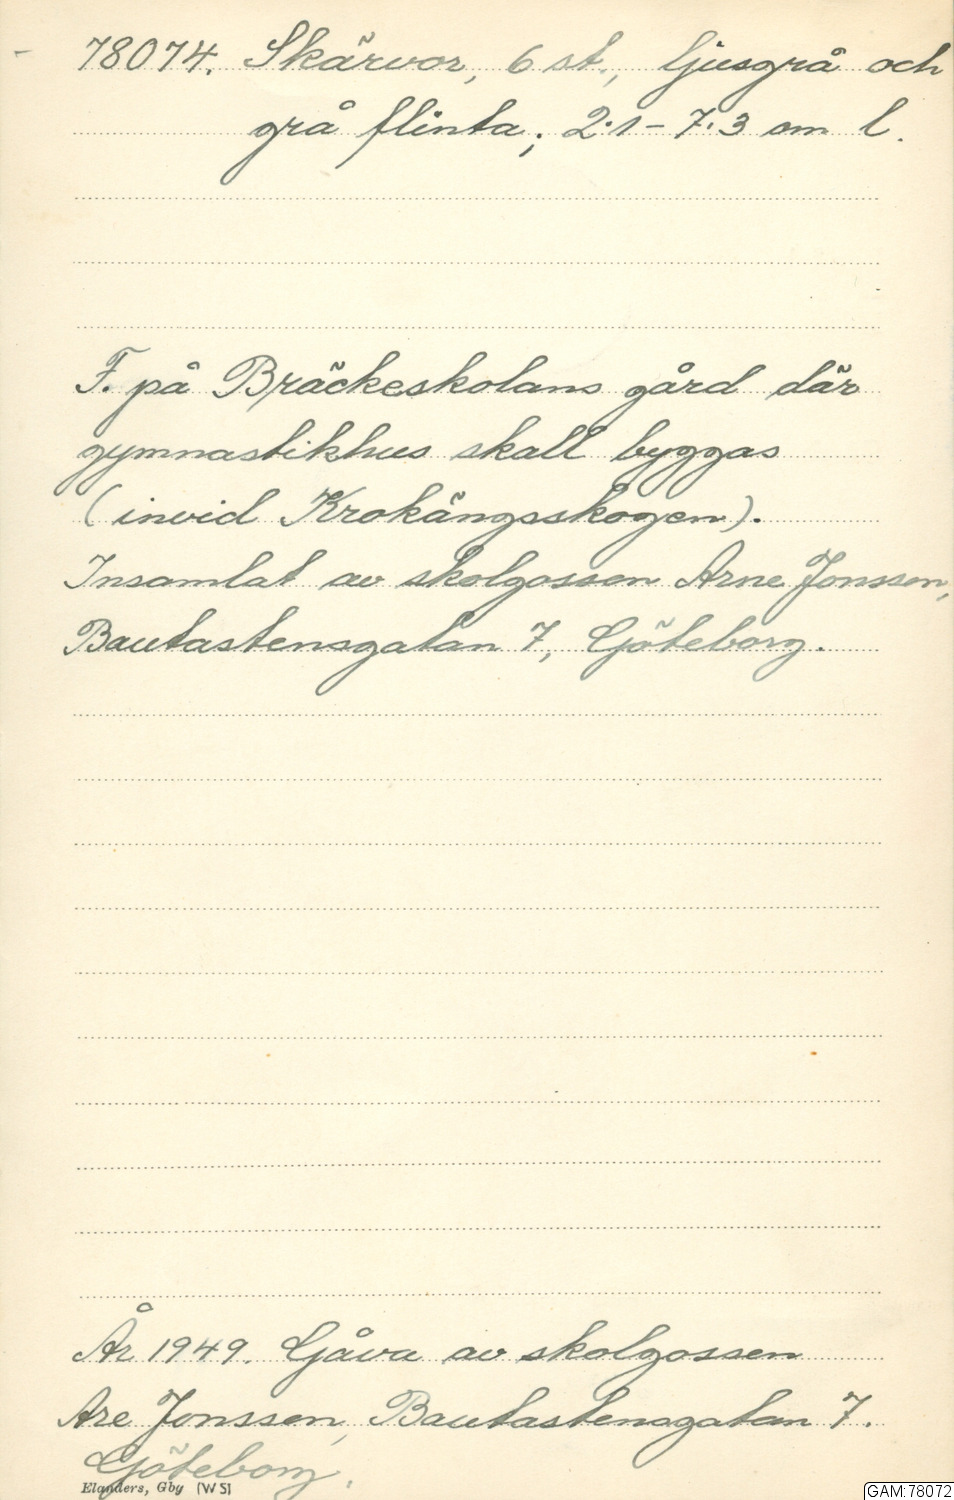 78074. Skärvor, 6 st., ljusgrå och
grå flinta; 2.1-7.3 cm l.
F. på Bräckeskolans gård där
gymnastikhus skall byggas
(invid Krokängsskogen).
Insamlat av skolgossen Arne Jonsson,
Bautastensgatan 7, Göteborg.
År 1949. Gåva av skolgossen
Are Jonsson, Bautastensgatan 7.
Göteborg.
Elanders, Gbg (W S)
GAM:78072